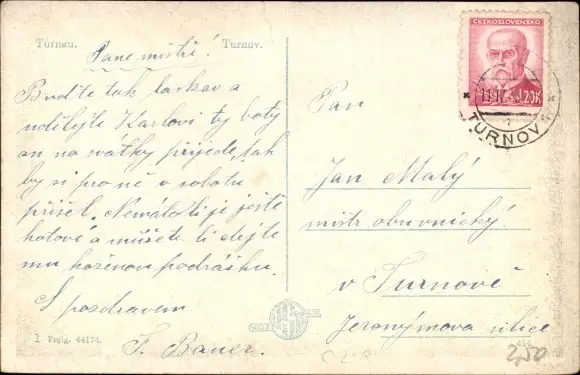 Turnau.
Turnov.
Pane mistře!
Buďte tak laskav a
udělejte Karlovi ty boty
on na svátky přijede, tak
by si pro ně v sobotu
přišel. Nemáloli je ještě
hotové a můžete li dejte
mu koženou podrážku.
S pozdravem
F. Bauer.
1 Frplg. 44174.
ČESKOSLOVENSKO
1.20K
TURNOV
Pan
Jan Malý
mistr obuvnický.
v Turnově
Jeronýmova ulice
2,50